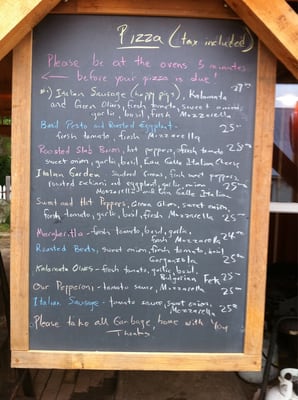 Pizza (tax included)
Please be at the ovens 5 minutes
← before your pizza is due!
Italian Sausage (happy pigs), Kalamata
and Green Olives, fresh tomato, sweet onion,
garlic, basil, fresh Mozzarella
Basil Pesto and Roasted Eggplant -
fresh tomato, fresh Mozzarella 25
Roasted Slab Bacon, hot peppers, fresh tomato
sweet onion, garlic, basil, Italian Cheese 25
Italian Garden
roasted zucchini and eggplant, garlic, onion
Mozzarella and Italian 25
Sweet and Hot Peppers, Green Olives, sweet onion,
fresh tomato, garlic, basil, fresh Mozzarella 25
Margherita - fresh tomato, basil, garlic,
fresh Mozzarella 24
Roasted Beets, sweet onion, fresh tomato, basil
Gorgonzola 25
Kalamata Olives - fresh tomato, garlic, basil,
Bulgarian Feta 25
Our Pepperoni - tomato sauce, Mozzarella 25
Italian Sausage - tomato sauce, sweet onion,
Mozzarella 25
Please take all Garbage, home with You
Thanks